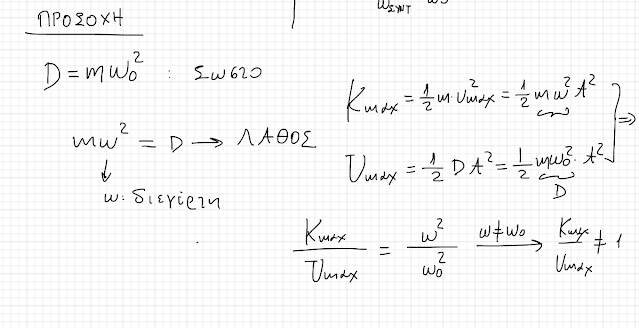 ΠΡΟΣΟΧΗ
D = mω₀² : Σωστο
mω² = D → ΛΑΘΟΣ
↓
ω: διεγέρτη
Kmax = 1/2 m·υ²max = 1/2 mω² A²
Umax = 1/2 D A² = 1/2 mω₀² · A² ⇒
D
Kmax/Umax = ω²/ω₀² ω≠ω₀ → Kmax/Umax ≠ 1